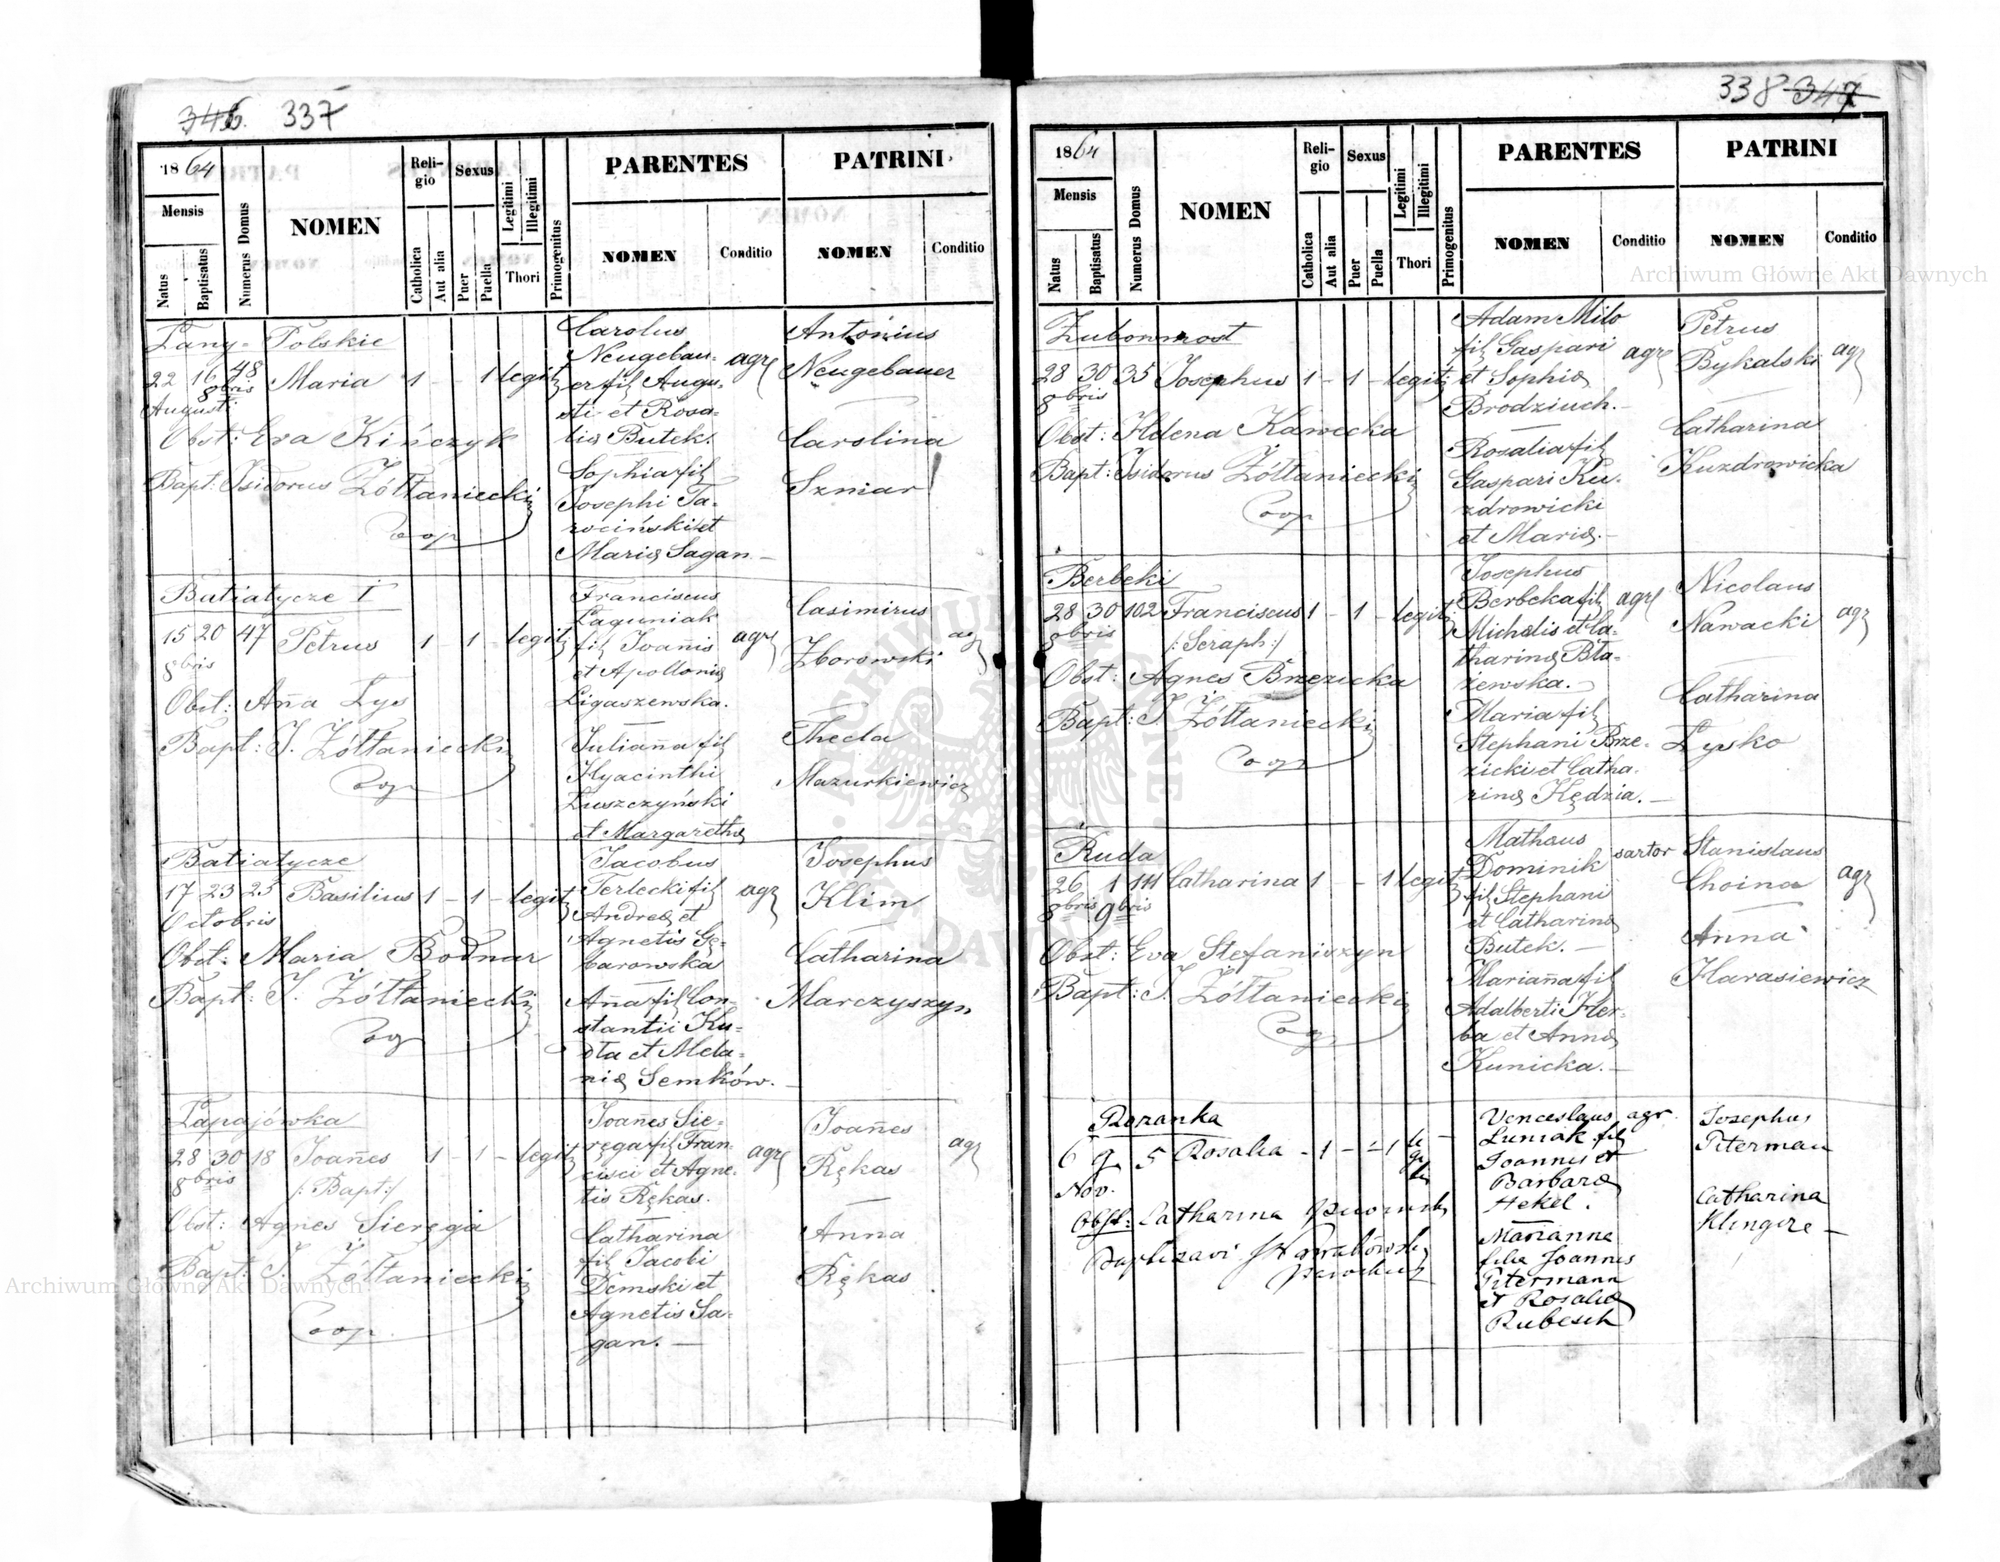 346. 337
1864
Mensis
Natus
Baptisatus
Numerus Domus
NOMEN
Religio
Catholica
Aut alia
Sexus
Puer
Puella
Legitimi
Illegitimi
Thori
Primogenitus
PARENTES
NOMEN
Conditio
PATRINI
NOMEN
Conditio
Łany-Polskie
22 16 48 Maria 1 - - 1 legit
Augusti 8bris
Obst: Eva Kińczyk
Bapt: Isidorus Żółtaniecki
Coop
Carolus
Neugebau- agr
er fil Augu-
sti et Rosa-
liæ Butek.
Sophia fil
Josephi Ta-
rociński et
Mariæ Sagan. -
Antonius
Neugebauer
Carolina
Szniar
Batiatycze I
15 20 47 Petrus 1 - 1 - legit
8bris
Obst: Ana Lys
Bapt: I. Żółtaniecki
Coop
Franciscus
Laguniak
fil Joanis agr
et Apolloniæ
Ligaszewska.
Juliana fil
Hyacinthi
Łuszczyński
et Margarethæ
Casimirus
Zborowski agr
Thecla
Mazurkiewicz
Batiatycze
17 23 25 Basilius 1 - 1 - legit
Octobris
Obst: Maria Bodnar
Bapt: I. Żółtaniecki
Coop
Jacobus
Terlecki fil agr
Andreæ et
Agnetis Gę-
barowska
Ana fil Con-
stantii Ku-
sta et Mela-
niæ Semków. -
Josephus
Klim
Catharina
Marczyszyn
Łapajówka
28 30 18 Joanes 1 - 1 - legit
8bris /: Bapt:/
Obst: Agnes Sieręga
Bapt: I. Żółtaniecki
Coop
Joanes Sie-
ręga fil Fran- agr
cisci et Agne-
tis Rękas.
Catharina
fil Jacobi
Demski et
Agnetis Sa-
gan. -
Joanes
Rękas agr
Anna
Rękas
338 347
1864
Mensis
Natus
Baptisatus
Numerus Domus
NOMEN
Religio
Catholica
Aut alia
Sexus
Puer
Puella
Legitimi
Illegitimi
Thori
Primogenitus
PARENTES
NOMEN
Conditio
PATRINI
NOMEN
Conditio
Zubowmost
28 30 35 Josephus 1 - 1 - legit
8bris
Obst: Helena Kawecka
Bapt: Isidorus Żółtaniecki
Coop
Adam Milo
fil Gaspari agr
et Sophiæ
Brodziuch. -
Rosalia fil
Gaspari Ku-
zdrowicki
et Mariæ. -
Petrus
Bykalski agr
Catharina
Kuzdrowicka
Berbeki
28 30 102 Franciscus 1 - 1 - legit
8bris /: Seraph:/
Obst: Agnes Brzezicka
Bapt: I. Żółtaniecki
Coop
Josephus
Berbeka fil agr
Michælis et Ca-
tharinæ Bła-
żewska. -
Maria fil
Stephani Brze-
zicki et Catha-
rinæ Kędzia. -
Nicolaus
Nawacki agr
Catharina
Lysko
Ruda
26 1 111 Catharina 1 - - 1 legit
8bris 9bris
Obst: Eva Stefaniszyn
Bapt: I. Żółtaniecki
Coop
Matheus
Dominik sartor
fil Stephani
et Catharinæ
Butek. -
Mariana fil
Adalberti Her-
ba et Annæ
Kunicka. -
Stanislaus
Choina agr
Anna
Harasiewicz
Rozanka
6 9 5 Rosalia - 1 - - 1 legiti
Nov.
Obst: Catharina
Baptizavi
Parochus
Venceslaus agr.
Luniak fil
Joannis et
Barbaræ
Hekel.
Marianna
filia Joannis
Petermann
et Rosaliæ
Rubesch
Josephus
Peterman
Catharina
Klingere -
Archiwum Główne Akt Dawnych
Archiwum Główne Akt Dawnych
ARCHIWUM GŁÓWNE AKT DAWNYCH